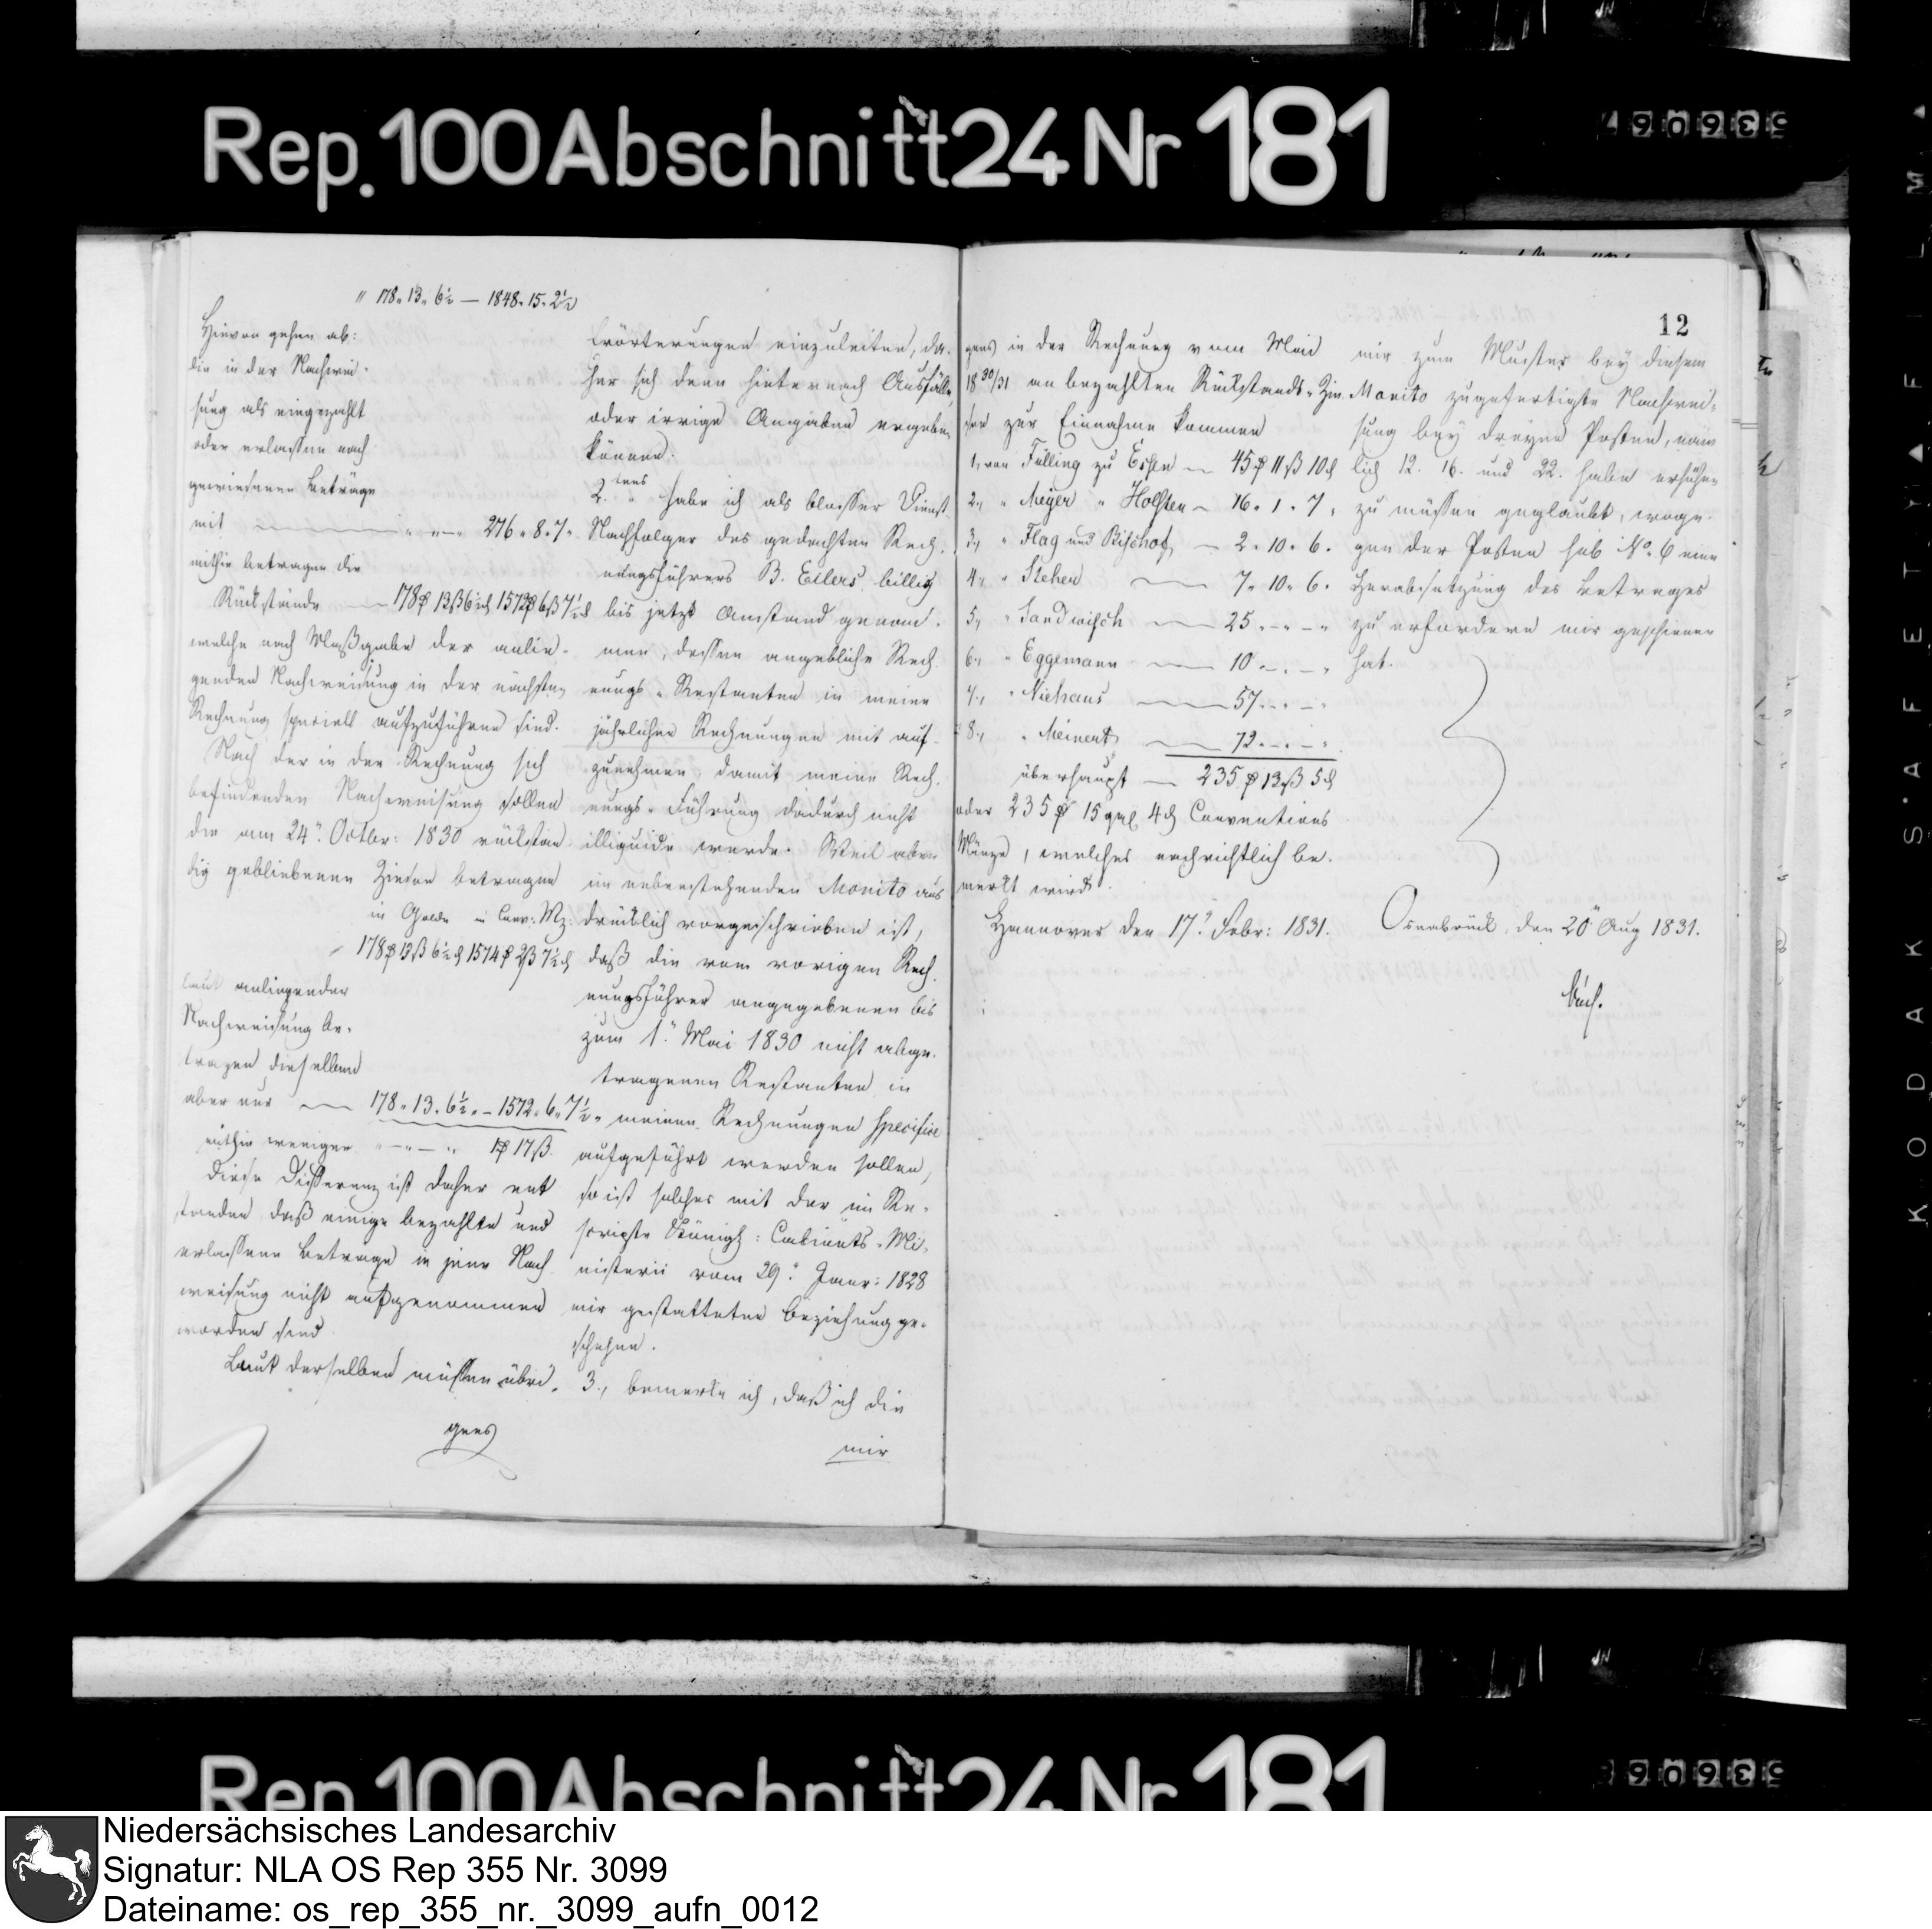 Rep. 100 Abschnitt 24 Nr 181
" 178. 13. 6½ — 1848. 15. 2½
Hievon gehen ab:
die in der Nachwei-
sung als eingezahlt
oder erlassen nach
gewiesenen Beträge
mit — " — 276. 8. 7.
mithin betragen die
Rückstände — 178 ₰ 13 ß 6½ ₰ 1572 ₰ 6 ß 7½ ₰
welche nach Maßgabe der anlie-
genden Nachweisung in der nächsten
Rechnung speciell aufzuführen sind.
Nach der in der Rechnung sich
befindenden Nachweisung sollen
die am 24ⁿ Octbr: 1830 rückstän-
dig gebliebenen Zinsen betragen
in Golde in Conv: Mz:
178 ₰ 13 ß 6½ ₰ 1574 ₰ 2 ß 7½ ₰
laut anliegender
Nachweisung be-
tragen dieselben
aber nur — 178. 13. 6½. — 1572. 6. 7½.
mithin weniger " — " — " 1 ₰ 17 ß.
Diese Differenz ist daher ent
standen daß einige bezahlte und
erlassene Betrage in jene Nach
weisung nicht aufgenommen
worden sind
Laut derselben müssen übri-
gens
Erörterungen einzuleiten, da-
her sich denn hinternach Ausfälle
oder irrige Angaben ergeben
können.
2tens habe ich als blosser Dienst-
Nachfolger des gedachten Rech-
nungsführers B. Eilers billig
bis jetzt Anstand genom-
men, dessen angebliche Rech-
nungs-Restanten in meine
jährlichen Rechnungen mit auf-
zunehmen, damit meine Rech-
nungs-Führung dadurch nicht
illiquide werde. Weil aber
im nebenstehenden Monito aus
drücklich vorgeschrieben ist,
daß die vom vorigen Rech-
nungsführer angegebenen bis
zum 1ⁿ Mai 1830 nicht abge-
tragenen Restanten in
meinen Rechnungen specifice
aufgeführt werden sollen,
so ist solches mit der im Re-
scripte Königl: Cabinets-Mi-
nisterii vom 29ⁿ Janr: 1828
mir gestatteten Beziehung ge-
schehen.
3., bemerke ich, daß ich die
mir
12
gens in der Rechnung vom Mai
18 30/31 an bezahlten Rückstands-Zin-
sen zur Einnahme kommen
1, von Fülling zu Essen — 45 ₰ 11 ß 10 ₰
2., " Meyer " Holsten — 16. 1. 7.
3., " Flag und Bischof — 2. 10. 6.
4., " Steher — 7. 10. 6.
5., " Sandwisch — 25. - . -
6., " Eggemann — 10. - . -
7., " Niehaus — 57. - . -
8., " Meinert — 72. - . -
überhaupt — 235 ₰ 13 ß 5 ₰
oder 235 ₰ 15 ggl 4 ₰ Conventions
Münze, welches nachrichtlich be-
merkt wird.
Hannover den 17ⁿ Febr: 1831.
mir zum Muster bey diesem
Monito zugefertigte Nachwei-
sung bey dreyen Posten, näm
lich 12. 16. und 22. habe erhöhen
zu müssen geglaubt, woge-
gen der Posten sub No. 6 eine
Herabsetzung des Betrages
zu erfordern mir geschienen
hat.
Osnabrück, den 20ⁿ Aug 1831.
Niedersächsisches Landesarchiv
Signatur: NLA OS Rep 355 Nr. 3099
Dateiname: os_rep_355_nr._3099_aufn_0012